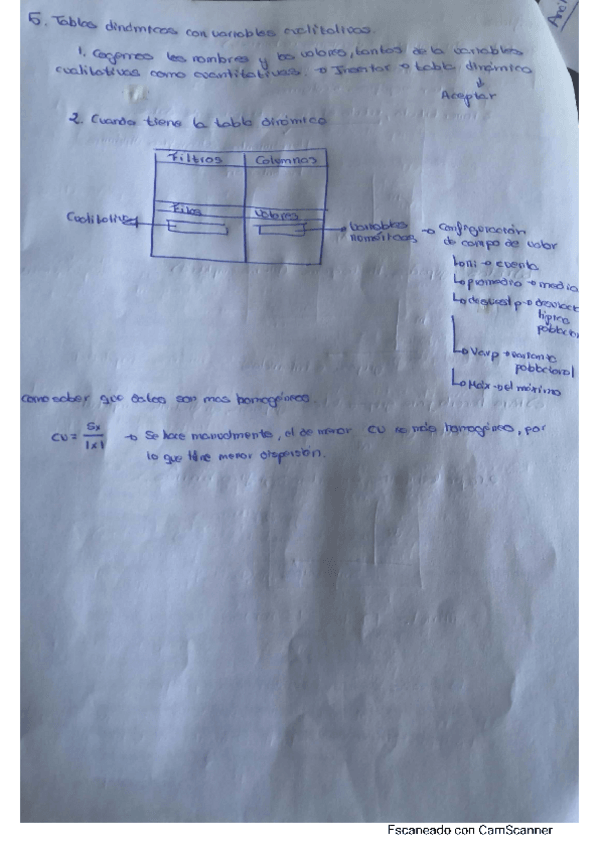 5. Tablas dinámicas con variables cualitativas.
1. Cogemos los nombres y los valores, tantos de la variables
cualitativas como cuantitativas → Insertar → tabla dinámica
↓
Aceptar
2. Cuando tiene la tabla dinámica
Filtros Columnas
Filas Valores
Cualitativas
Variables numéricas → Configuración
de campo de valor
↳ni → cuenta
↳promedio → media
↳desvest p →
típica
↳Varp → varianza
poblacional
↳Máx → el máximo
como saber que datos son mas homogéneos.
CV = Sx / |x̄| → Se hace manualmente, el de menor CV es más homogéneo, por
lo que tiene menor dispersión.
Escaneado con CamScanner